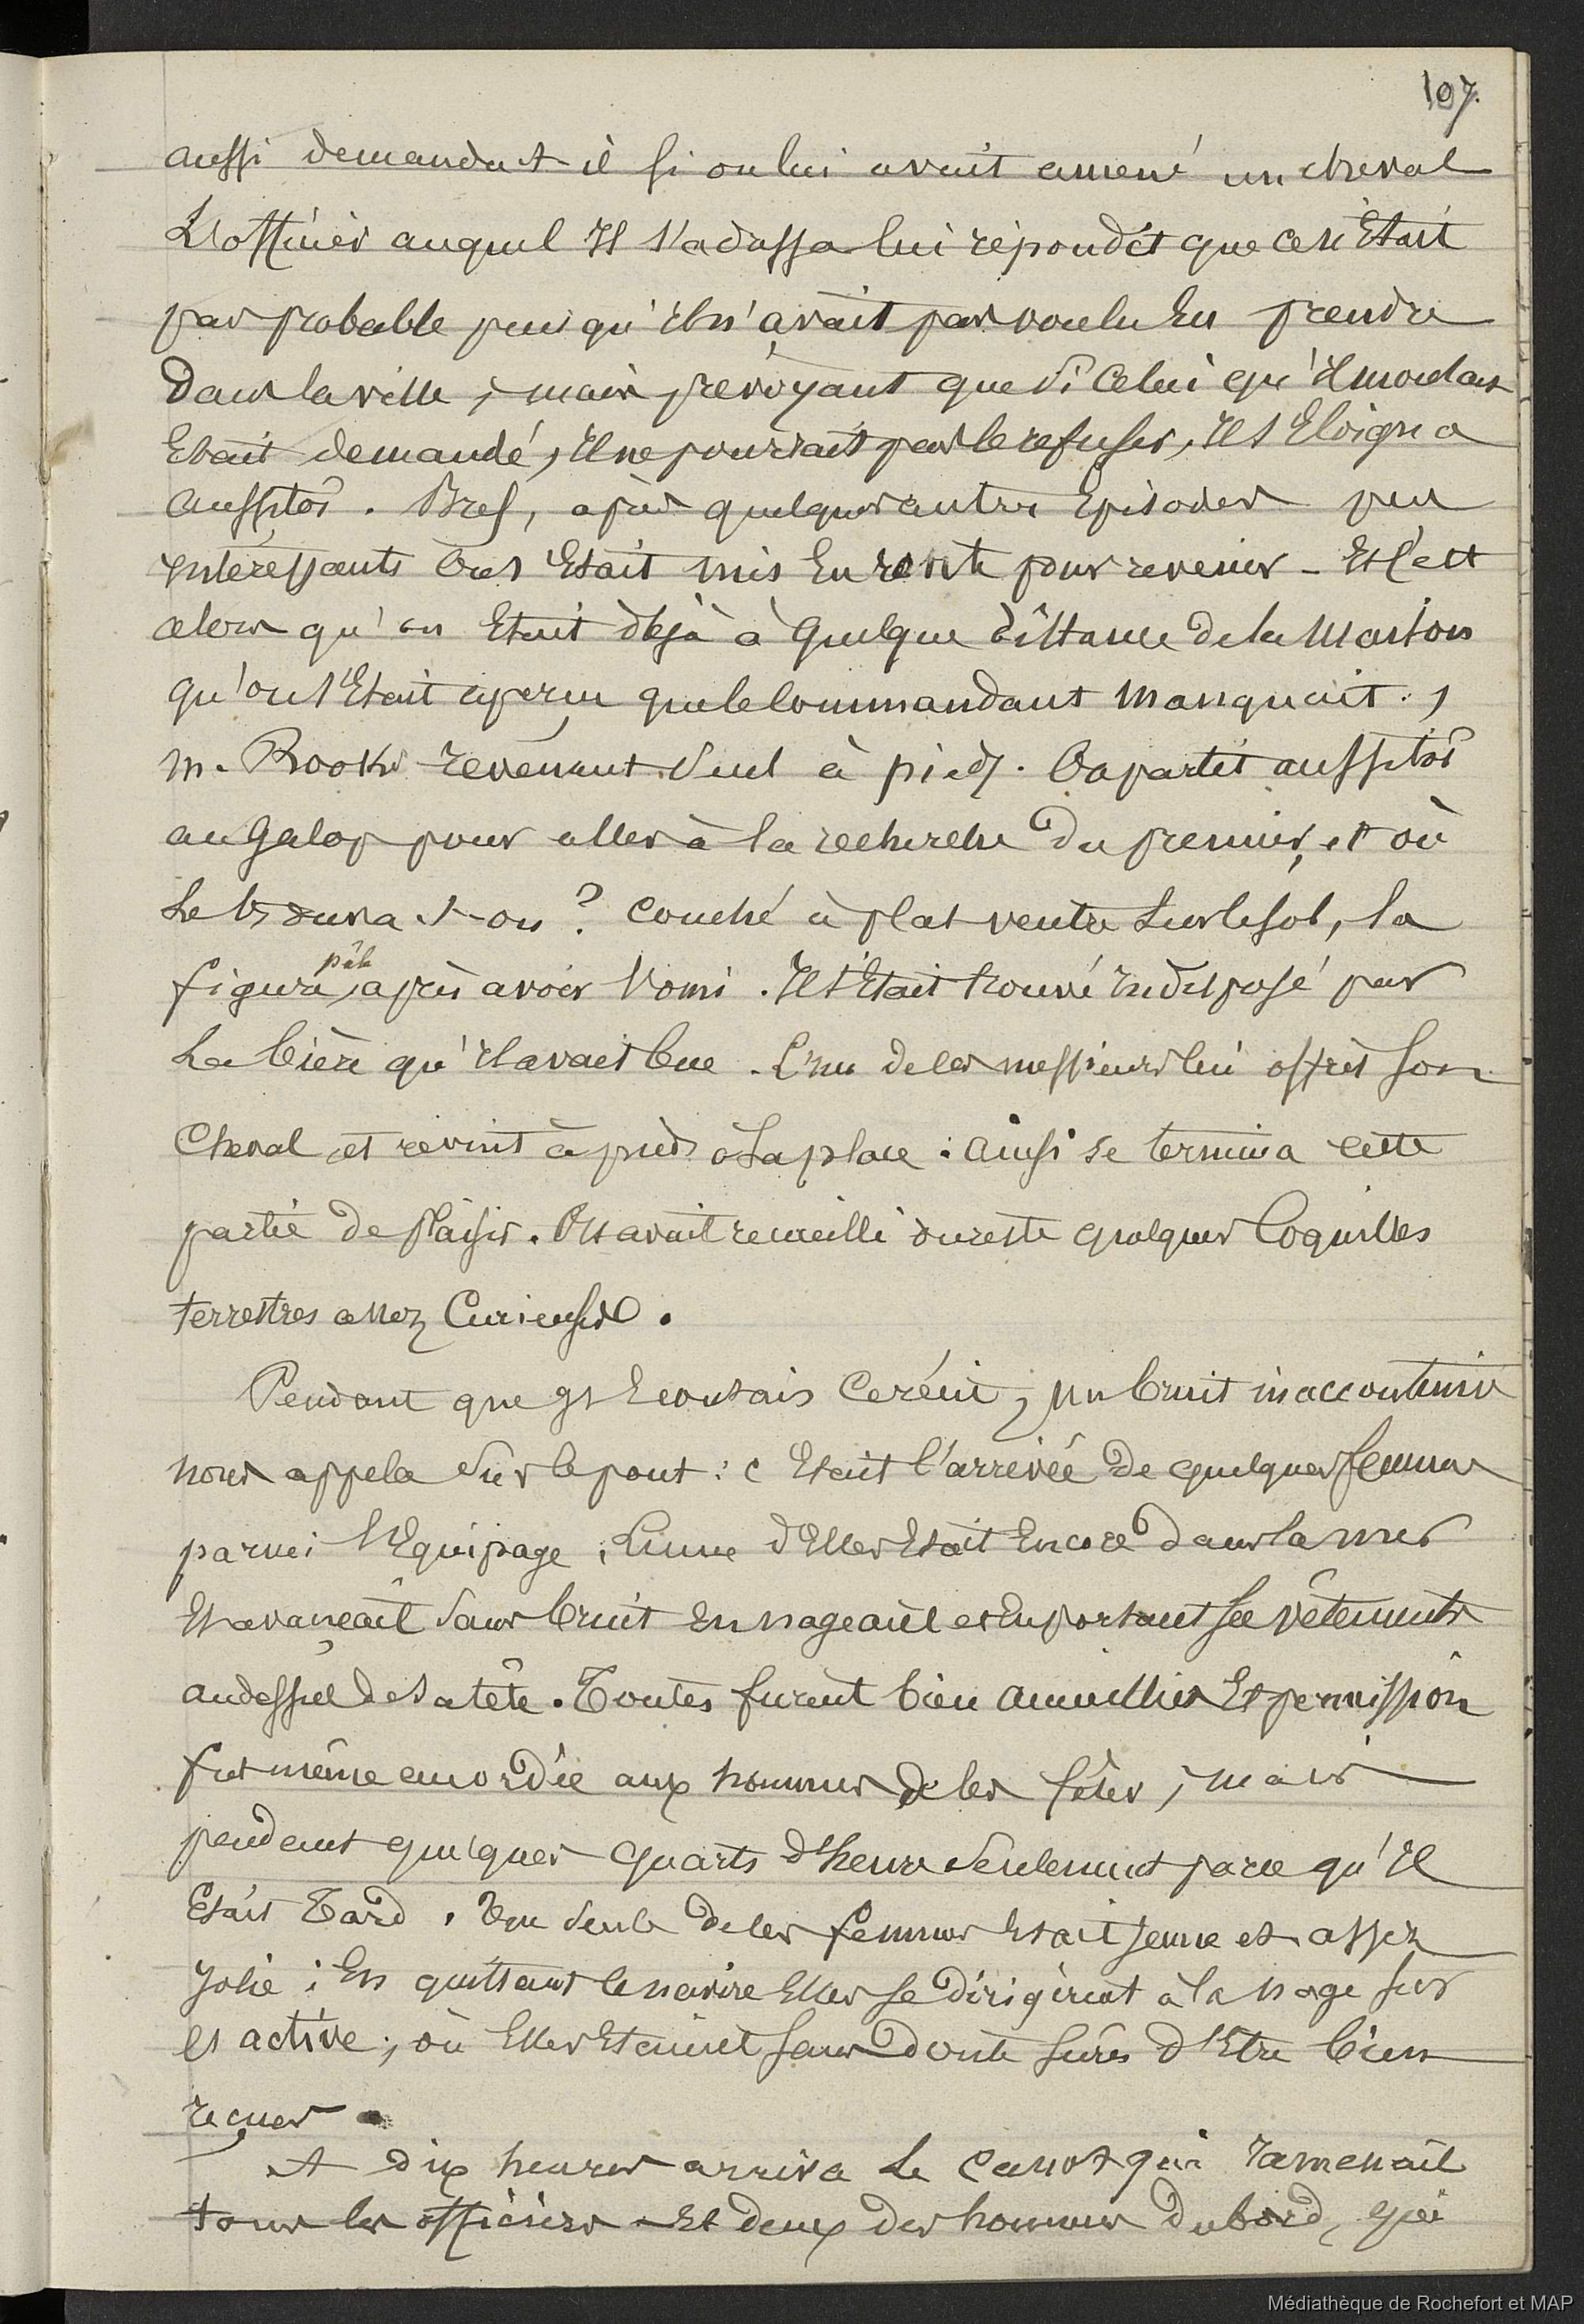 107.
aussi demanda t il si on lui avait amené un cheval
L'officier auquel Il s'adressa lui répondit que ce n'Etait
pas probable puisqu'Il n'avait pas voulu En prendre
Dans la ville, mais prévoyant que si Celui qu'Il montait
Etait demandé, Il ne pourrait pas le refuser, Il s'Eloigna
aussitôt. Bref, après quelques autres Episodes peu
intéressants On s'Etait mis En route pour revenir - Et c'est
alors qu'on Etait déjà à Quelque distance de la Maison
qu'on s'Etait aperçu que le Commandant Manquait,
M. Rooke revenant seul à pied. On partit aussitôt
au Galop pour aller à la recherche Du premier, et où
Le trouva-t-on ? Couché à plat ventre sur le sol, la
figure pâle, après avoir Vomi. Il s'Etait trouvé Indisposé par
La bière qu'Il avait bue. L'un de ces messieurs lui offrit son
Cheval et revint à pied à Sa place : Ainsi se termina cette
partie de plaisir. On avait recueilli du reste quelques Coquilles
terrestres assez Curieuses.
Pendant que j'Ecoutais Ce récit, un bruit inaccoutumé
nous appela sur le pont : c'Etait l'arrivée de quelques femmes
parmi l'Equipage. L'une d'Elles Etait Encore dans la mer
Et avançait sans bruit En nageant et En portant ses vêtements
au dessus de sa tête. Toutes furent bien accueillies Et permission
fut même accordée aux hommes de les fêter, mais
pendant quelques Quarts d'heure seulement parce qu'Il
Etait Tard. Une seule de ces femmes Etait jeune et assez
Jolie ; En quittant le navire Elles se dirigèrent à la nage sur
l'active, où Elles Etaient sans Doute sûres d'Etre bien
reçues.
A dix heures arriva Le Canot qui Ramenait
tous les officiers Et deux des hommes Du bord, qui
Médiathèque de Rochefort et MAP